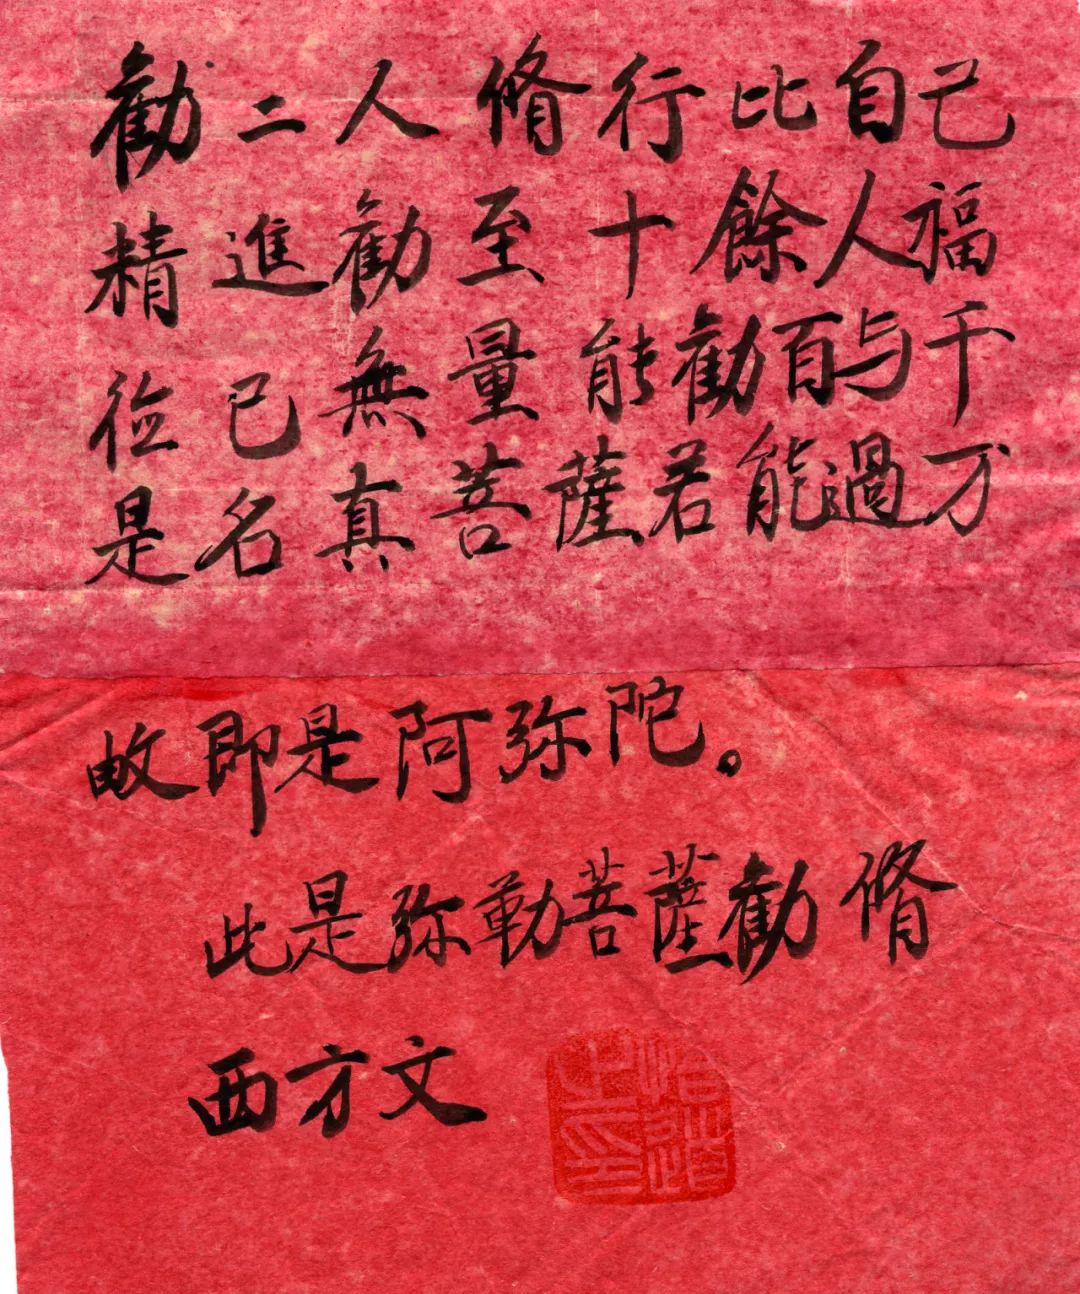 勧二人脩行比自己
精進勧至十餘人福
徳已無量能勧百与千
是名真菩薩若能過万
即是阿弥陀。
此是弥勒菩薩勧脩
西方文